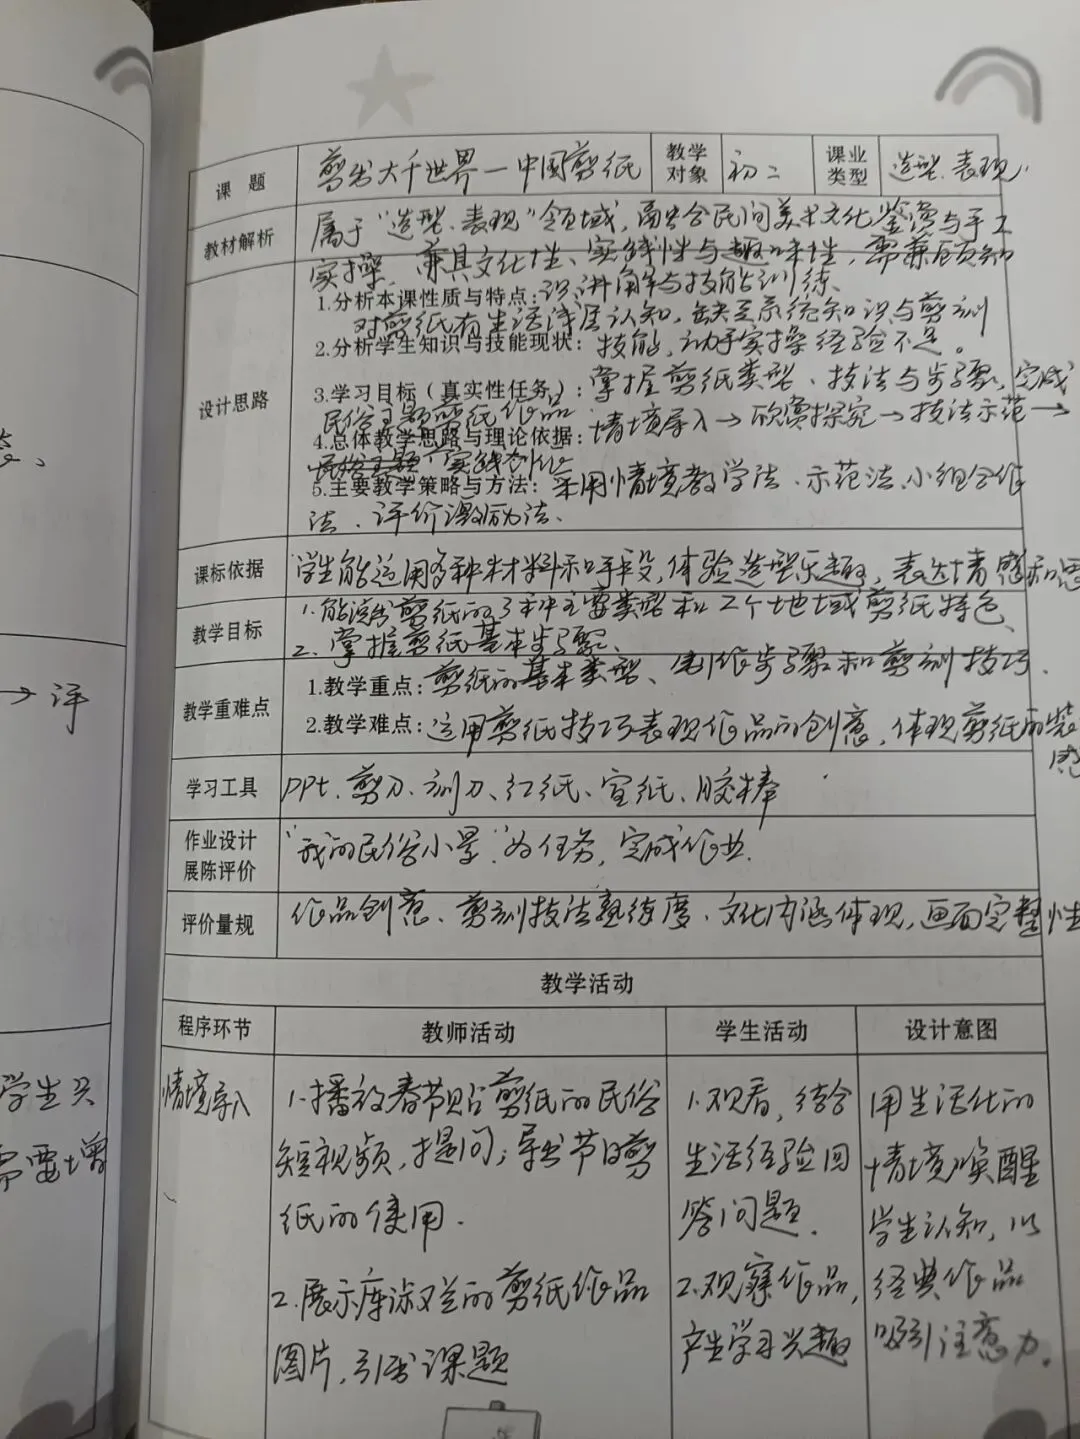 课 题 剪出大千世界—中国剪纸 教学对象 初二 课业类型 造型.表现
教材解析 属于“造型.表现”领域,融合民间美术文化鉴赏与手工
实操,兼具文化性、实践性与趣味性,需兼顾知
设计思路
1.分析本课性质与特点:识讲解与技能训练、
对剪纸有生活浅层认知,缺乏系统知识与剪刻
2.分析学生知识与技能现状:技能,动手实操经验不足。
3.学习目标(真实性任务):掌握剪纸类型、技法与步骤,完成
民俗主题剪纸作品
4.总体教学思路与理论依据:情境导入→欣赏探究→技法示范→
民俗主题 实践创作
5.主要教学策略与方法:采用情境教学法、示范法、小组合作
法、评价激励法、
课标依据 学生能运用多种材料和手段,体验造型乐趣,表达情感和思
教学目标 1.能说出剪纸的3种主要类型和2个地域剪纸特色、
2.掌握剪纸基本步骤、
教学重难点 1.教学重点:剪纸的基本类型、制作步骤和剪刻技巧.
2.教学难点:运用剪纸技巧表现作品的创意,体现剪纸的装
学习工具 PPt、剪刀、刻刀、红纸、宣纸、胶棒
作业设计展陈评价 “我的民俗小景”为任务,完成作业.
评价量规 作品创意、剪刻技法熟练度、文化内涵体现,画面完整性
教学活动
程序环节 教师活动 学生活动 设计意图
情境导入
1.播放春节贴剪纸的民俗
短视频,提问,导出节日剪
纸的使用.
2.展示库淑兰的剪纸作品
图片,引出课题
1.观看,结合
生活经验回
答问题.
2.观察作品,
产生学习兴趣
用生活化的
情境唤醒
学生认知,以
经典作品
吸引注意力。
→评
学生只
需要增